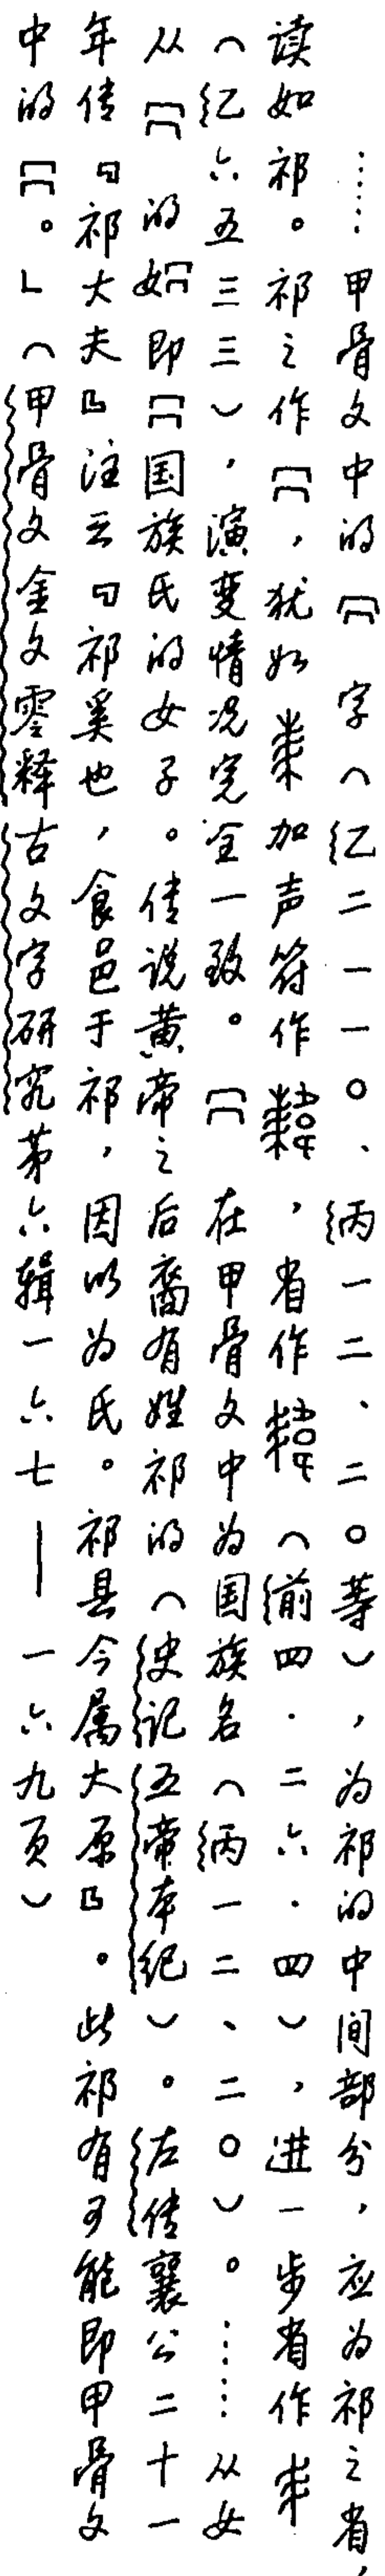 ……甲骨文中的字(乙二一一〇、丙一二、二〇等),为祁的中间部分,应为祁之省,
读如祁。祁之作,犹如加声符作,省作(前四·二六·四),进一步省作
(乙六五三三),演变情况完全一致。在甲骨文中为国族名(丙一二、二〇)。……从女
从的即国族氏的女子。传说黄帝之后裔有姓祁的(史记五帝本纪)。左传襄公二十一
年传『祁大夫』注云『祁奚也,食邑于祁,因以为氏。祁县今属大原』。此祁有可能即甲骨文
中的。」(甲骨文金文零释古文字研究第六辑一六七——一六九页)